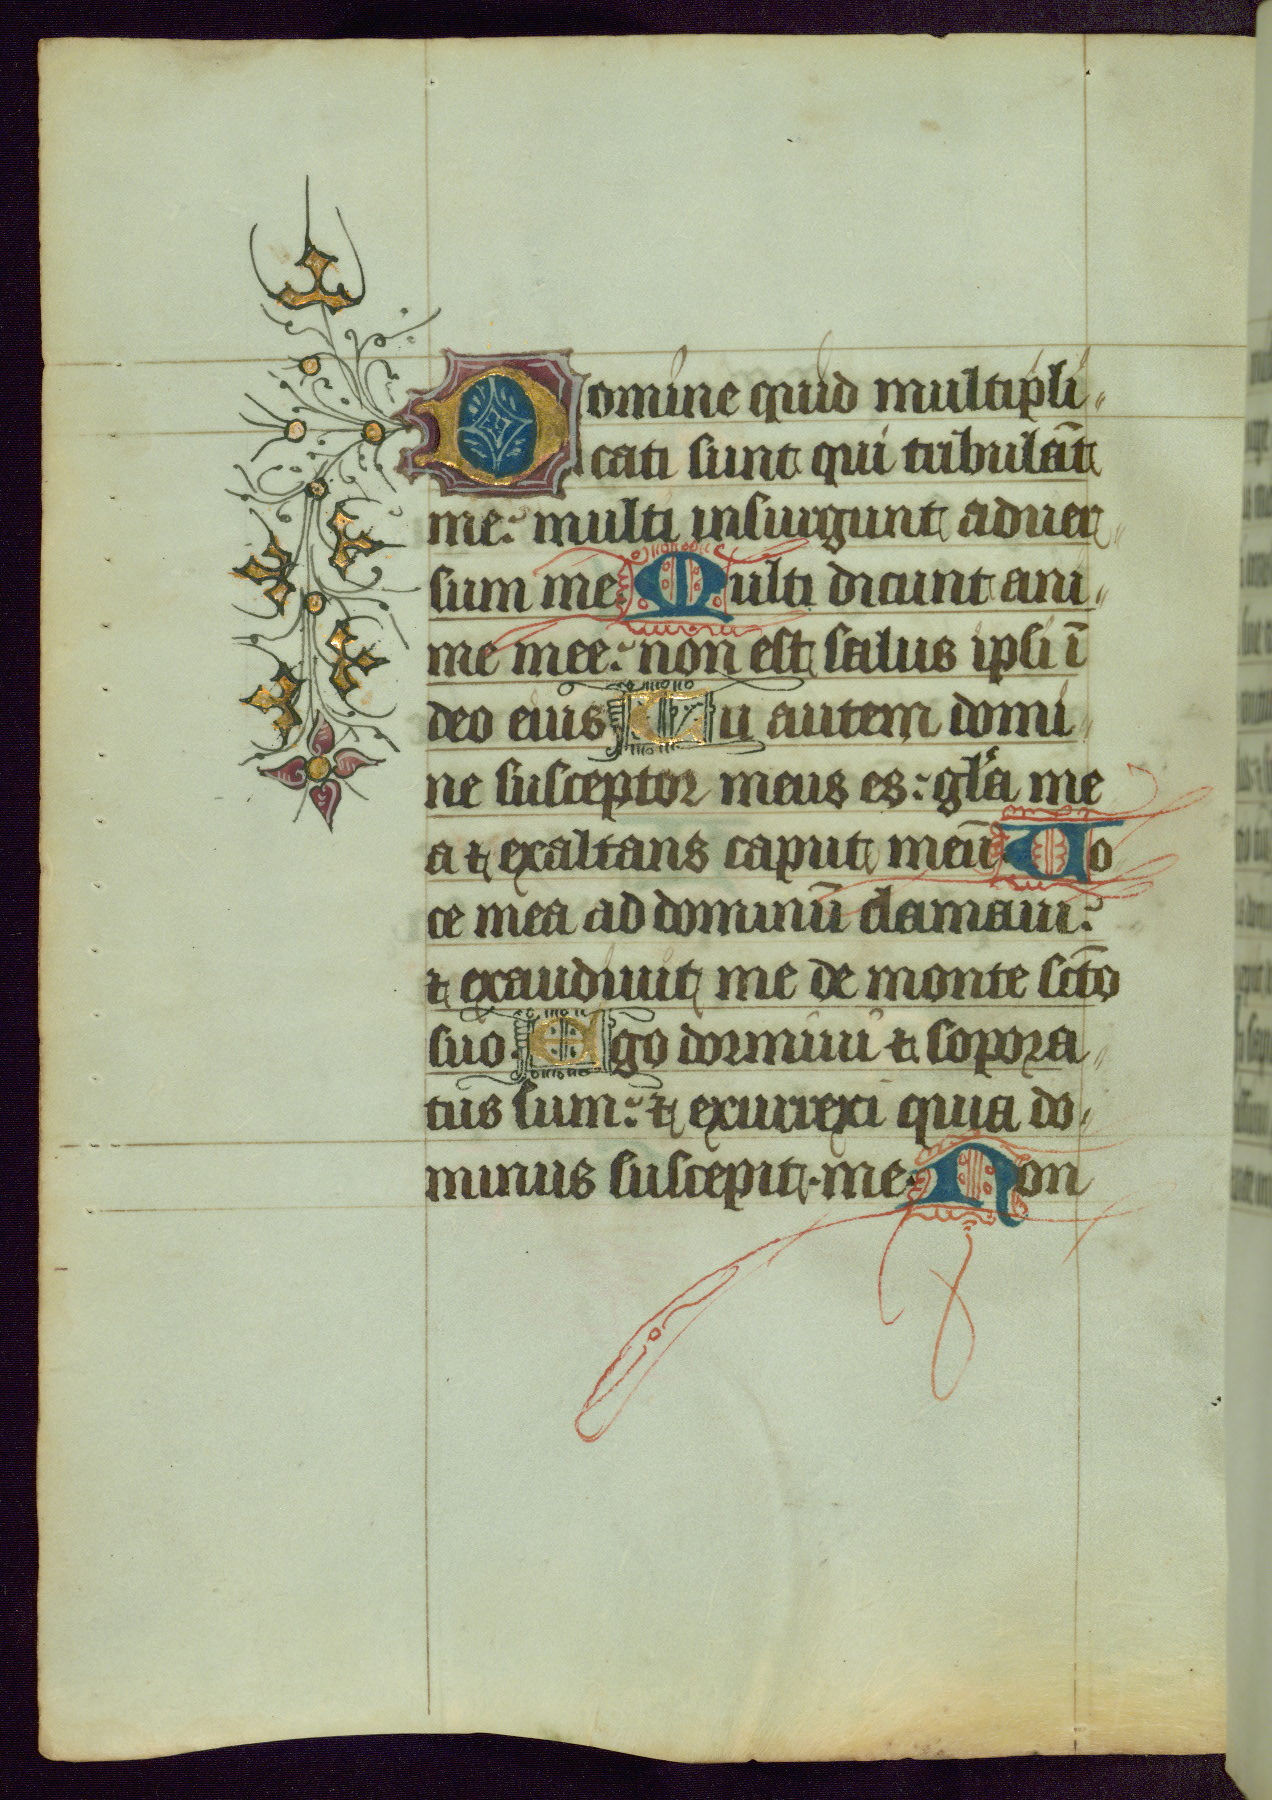 Domine quid multipli
cati sunt qui tribulāt
me: multi insurgunt aduer
sum me. Multi dicunt ani
me mee: non est salus ipsi ī
deo eius Tu autem domi
ne susceptor meus es: gl'a me
a ⁊ exaltans caput meū Uo
ce mea ad dominū clamaui:
⁊ exaudiuit me de monte sc̄to
suo. Ego dormiui ⁊ sopora
tus sum: ⁊ exurrexi quia do
minus suscepit me. Non